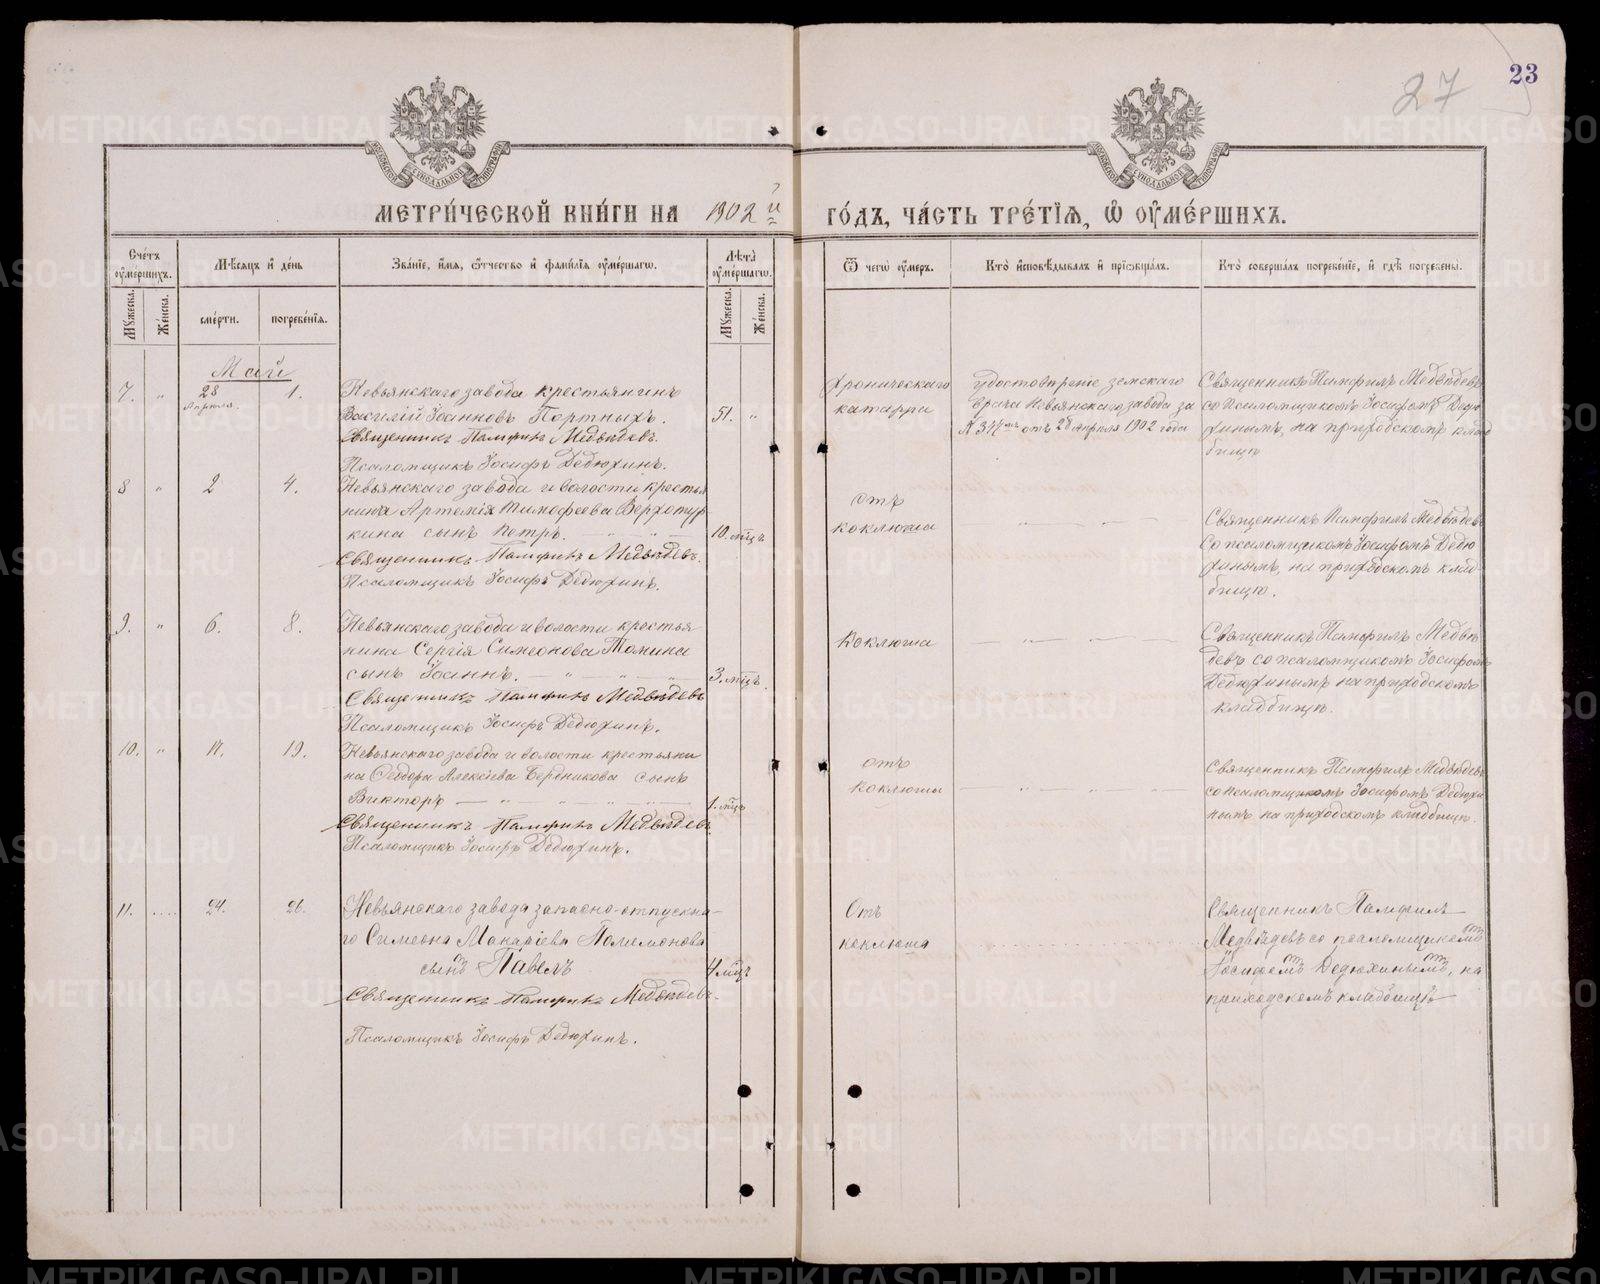 27
23
МОСКОВСКОЙ СѴНОДАЛЬНОЙ ТИПОГРАФІИ
МОСКОВСКОЙ СѴНОДАЛЬНОЙ ТИПОГРАФІИ
МЕТРИ́ЧЕСКОЙ КНИ́ГИ НА 1902 й
ГО́ДЪ, ЧА́СТЬ ТРЕ́ТІѦ, Ѡ҆ ОУ҆МЕ́РШИХЪ.
Сче́тъ оу҆ме́ршихъ.
Мꙋ́жеска.
Же́нска.
Мѣ́сѧцъ и҆ де́нь
сме́рти.
погребе́нїѧ.
Зва́нїе, и҆́мѧ, ѻ҆́тчество и҆ фами́лїѧ оу҆ме́ршагѡ.
Лѣ́та оу҆ме́ршагѡ.
Мꙋ́жеска.
Же́нска.
Ѿ чегѡ̀ оу҆́меръ.
Кто̀ и҆сповѣ́дывалъ и҆ прїѡбща́лъ.
Кто̀ соверша́лъ погребе́нїе, и҆ гдѣ̀ погребены̀.
Май
7. " 28 Апрѣля. 1.
Невьянскаго завода крестьянинъ
Василій Іоанновъ Портныхъ. 51. "
Священникъ Памфилъ Медвѣдевъ.
Псаломщикъ Іосифъ Дедюхинъ.
Хроническаго
катарра
удостовѣреніе земскаго
врача Невьянскаго завода за
отъ 28 апрѣля 1902 года
Священникъ Памфилъ Медвѣдевъ
со псаломщикомъ Іосифомъ Дедю
хинымъ, на приходскомъ клад
бищѣ
8 " 2 4.
Невьянскаго завода и волости крестья
нина Артемія Тимофеева Верхотур
кина сынъ Петръ. 10. мѣц.
Священникъ Памфилъ Медвѣдевъ.
Псаломщикъ Іосифъ Дедюхинъ.
отъ
коклюша
Священникъ Памфилъ Медвѣдевъ
со псаломщикомъ Іосифомъ Дедю
хинымъ, на приходскомъ клад-
бищѣ.
9. " 6. 8.
Невьянскаго завода и волости крестья
нина Сергія Симеонова Томина
сынъ Іоаннъ. 3. мѣц.
Священникъ Памфилъ Медвѣдевъ
Псаломщикъ Іосифъ Дедюхинъ.
Коклюша
Священникъ Памфилъ Медвѣ
девъ со псаломщикомъ Іосифомъ
Дедюхинымъ на приходскомъ
кладбищѣ.
10. " 17. 19.
Невьянскаго завода и волости крестьяни
на Ѳеодора Алексіева Бердникова сынъ
Викторъ 1. мѣц.
Священникъ Памфилъ Медвѣдевъ
Псаломщикъ Іосифъ Дедюхинъ.
отъ
коклюша
Священникъ Памфилъ Медвѣдевъ
со псаломщикомъ Іосифомъ Дедюхи
нымъ на приходскомъ кладбищѣ.
11. .... 24. 26.
Невьянскаго завода запасно-отпускна-
го Симеона Макаріева
сынъ Павелъ 4 мѣц.
Священникъ Памфилъ Медвѣдевъ.
Псаломщикъ Іосифъ Дедюхинъ.
Отъ
коклюша
Священникъ Памфилъ
Медвѣдевъ со псаломщикомъ
Іосифомъ Дедюхинымъ, на
приходскомъ кладбищѣ
METRIKI.GASO-URAL.RU